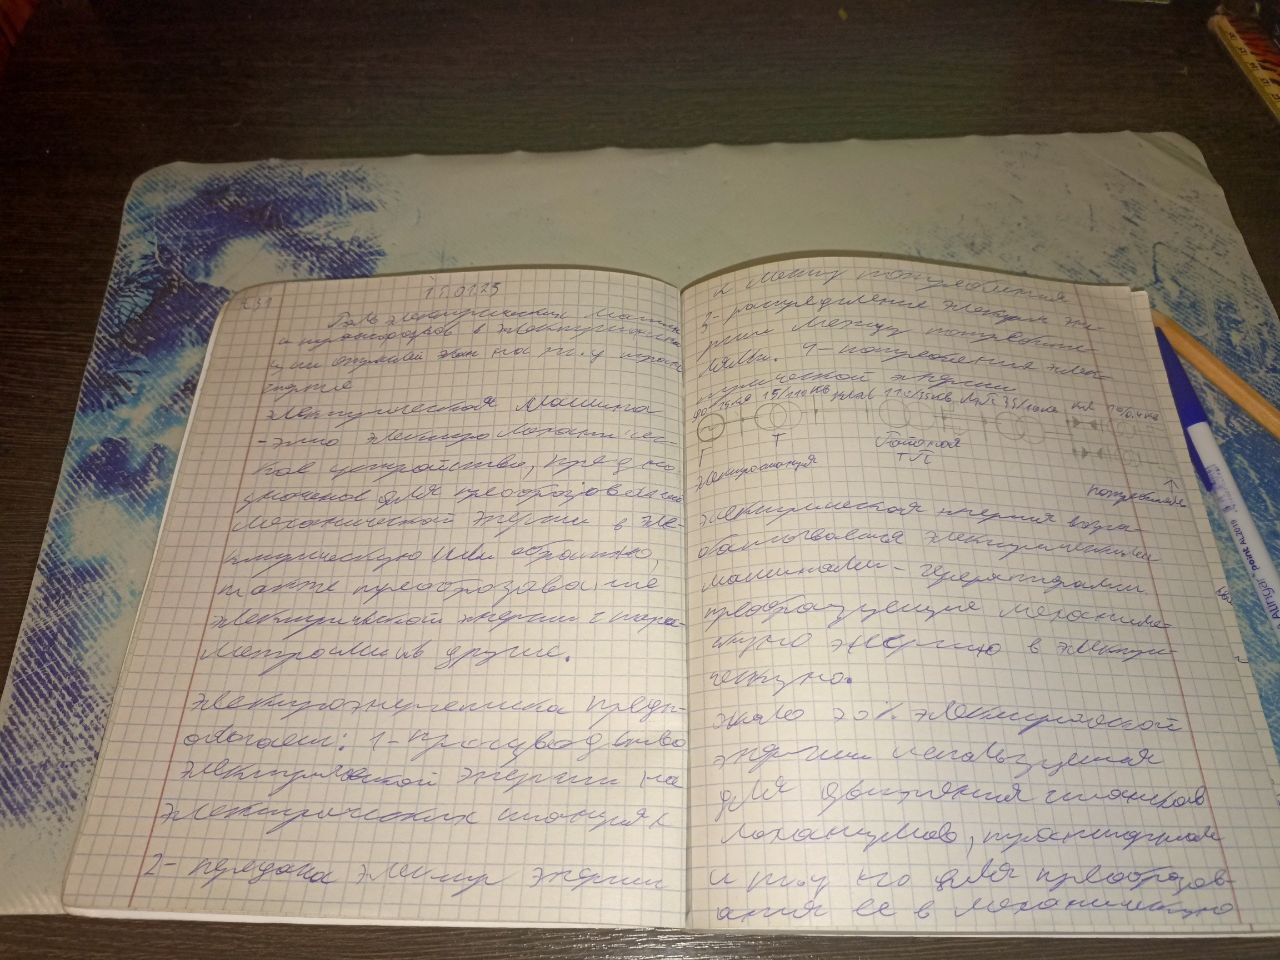 17.01.25
Роль электрических машин
и трансформаторов в
электрическая машина
- это электро механичес-
кое устройство, предна
значеное для преобразования
механической энергии в эле-
ктрическую или обратно,
также преобразование
электрической энергии с пара-
метрами в другие.
Электроэнергетика предп-
ологает: 1 - производство
электрической энергии на
электрических станциях
2 - передача электр энергии
к месту потребления
3 - распределение электр эне
ргии между потребите
лями. 4 - потребления элек
трической энергии
15/110 кВ 110/35 кВ 35/10 кВ 10/0,4 кВ
Т
Г
ТП
электростанция
потребители
электрическая энергия выра-
батывается электрическими
машинами - генераторами
преобразующие механиче-
скую энергию в электри-
ческую.
около 70% электрической
энергии используется
для движения станков
механизмов, транспорта
и т.д но для преобразов-
ания ее в механическую
Point